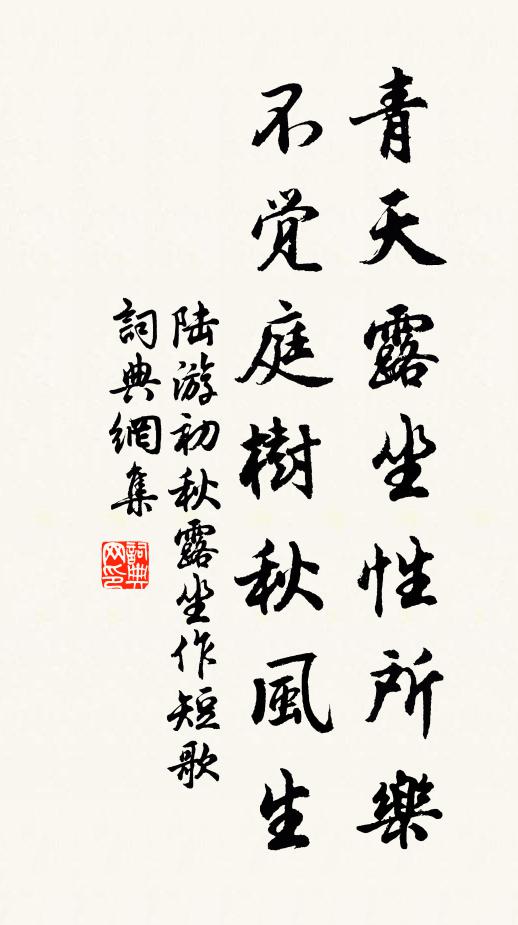 青天露坐性所樂
不覚庭樹秋風生
陆游初秋露坐作短歌
詞典網集
詞典网印